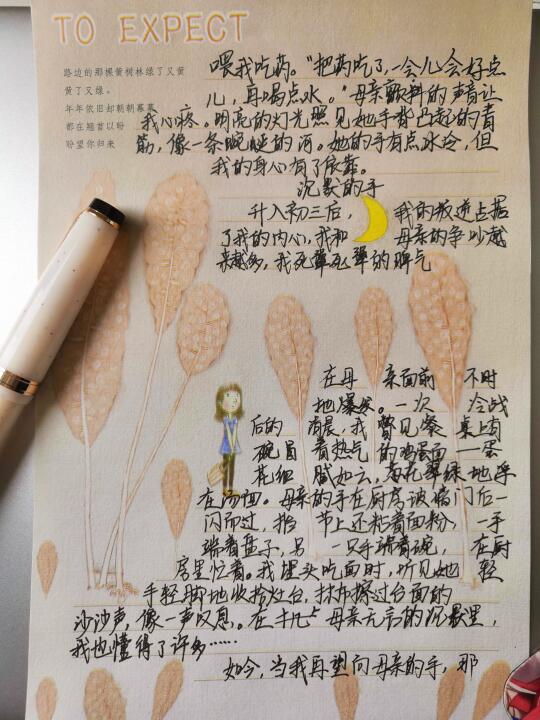 TO EXPECT
路边的那棵黄树林绿了又黄
黄了又绿。
年年依旧却朝朝暮暮
都在翘首以盼
盼望你归来
喂我吃药。“把药吃了,一会儿会好点
儿,再喝点水。”母亲颤抖的声音让
我心疼。明亮的灯光照见她手背凸起的青
筋,像一条蜿蜒的河。她的手有点冰冷,但
我的身心有了依靠。
沉默的手
升入初三后, 我的叛逆占据
了我的内心,我和 母亲的争吵越
来越多,我 的脾气
在母 亲面前 不时
地爆发。一次 冷战
后的 清晨,我 瞥见餐 桌上有
碗冒 着热气 的鸡蛋面 一蛋
花细 腻如云,葱花翠绿 地浮
在汤面。母亲的手在厨房玻璃门后一
闪而过,指 节上还粘着面粉,一手
端着盘子,另 一只手端着碗, 在厨
房里忙着。我埋头吃面时,听见她 轻
手轻脚地收拾灶台,抹布擦过台面的
沙沙声,像一声叹息。在 母亲无言的沉默里,
我也懂得了许多……
如今,当我再望向母亲的手,那